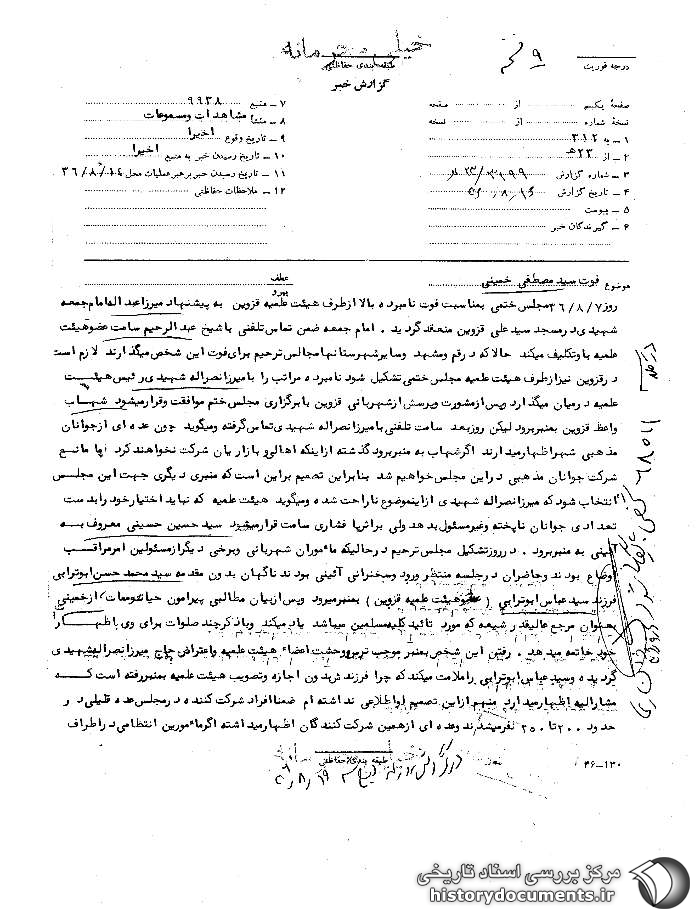 خیلی محرمانه
طبقه بندی حفاظتی
گزارش خبر
درجه فوریت
صفحهٔ یکم از صفحه
نسخهٔ شماره از نسخه
۱ ــ به ۳۱۲
۲ ــ از ۲۳ هـ
۳ ــ شماره گزارش
۴ ــ تاریخ گزارش
۵ ــ پیوست
۶ ــ گیرندگان خبر
۷ ــ منبع ۹۹۳۸
۸ ــ منشأ مشاهدات ومسموعات
۹ ــ تاریخ وقوع اخیرا
۱۰ ــ تاریخ رسیدن خبر به منبع اخیرا
۱۱ ــ تاریخ رسیدن خبر برهبر عملیات محل ۳۶/۸/۱۴
۱۲ ــ ملاحظات حفاظتی
موضوع فوت سید مصطفی خمینی
عطف
پیرو
روز ۳۶/۸/۷ مجلس ختمی بمناسبت فوت نامبرده بالا ازطرف هیئت علمیه قزوین به پیشنهاد میرزاعبداله امام جمعه
شهیدی درمسجد سید علی قزوین منعقد گردید . امام جمعه ضمن تماس تلفنی باشیخ عبدالرحیم سامت عضوهیئت
علمیه باوتکلیف میکند حالا که درقم ومشهد وسایرشهرستانها مجالس ترحیم برای فوت این شخص میگذارند لازم است
درقزوین نیزازطرف هیئت علمیه مجلس ختمی تشکیل شود نامبرده مراتب را بامیرزانصراله شهیدی رئیس هیئت
علمیه درمیان میگذارد وپس ازمشورت وپرسش ازشهربانی قزوین بابرگزاری مجلس ختم موافقت وقرارمیشود شهاب
واعظ قزوین بمنبربرود لیکن روزبعد سامت تلفنی بامیرزانصراله شهیدی تماس گرفته ومیگوید چون عده ای ازجوانان
مذهبی شهراظهارمیدارند اگرشهاب به منبربرود گذشته ازاینکه اهالی و بازاریان شرکت نخواهند کرد آنها مانع
شرکت جوانان مذهبی دراین مجلس خواهیم شد بنابراین تصمیم براین است که منبری دیگری جهت این مجلس
انتخاب شود که میرزانصراله شهیدی ازاینموضوع ناراحت شده ومیگوید هیئت علمیه که نباید اختیارخود رابدست
تعدادی جوانان ناپخته وغیرمسئول بدهد ولی براثر پافشاری سامت قرارمیشود سید حسین حسینی معروف به
آئینی به منبربرود . درروزتشکیل مجلس ترحیم درحالیکه مأموران شهربانی وبرخی دیگرازمسئولین امرمراقب
اوضاع بودند وحاضران درجلسه منتظر ورود وسخنرانی آئینی بودند ناگهان بدون مقدمه سید محمد حسن ابوترابی
فرزند سید عباس ابوترابی ( عضوهیئت علمیه قزوین ) بمنبرمیرود وپس ازبیان مطالبی پیرامون ازخمینی
بعنوان مرجع عالیقدر شیعه که مورد تائید کلیه مسلمین میباشد یاد میکند وباذکرچند صلوات برای وی اظهارات
خود خاتمه میدهد . رفتن این شخص بمنبر موجب ترس ووحشت اعضاء هیئت علمیه واعتراض حاج میرزانصراله شهیدی
گردیده وسید عباس ابوترابی راملامت میکند که چرا فرزند تو بدون اجازه وتصویب هیئت علمیه بمنبررفته است که
مشارالیه اظهارمیدارد منهم ازاین تصمیم او اطلاعی نداشته ام ضمنا افراد شرکت کننده درمجلس عده قلیلی در
حدود ۲۰۰ تا ۲۵۰ نفرمیشدند وعده ای ازهمین شرکت کنندگان اظهارمیداشتند اگرمأمورین انتظامی دراطراف
طبقه بندی حفاظتی
۴۶-۱۳۰
مرکز بررسی اسناد تاریخی
historydocuments.ir